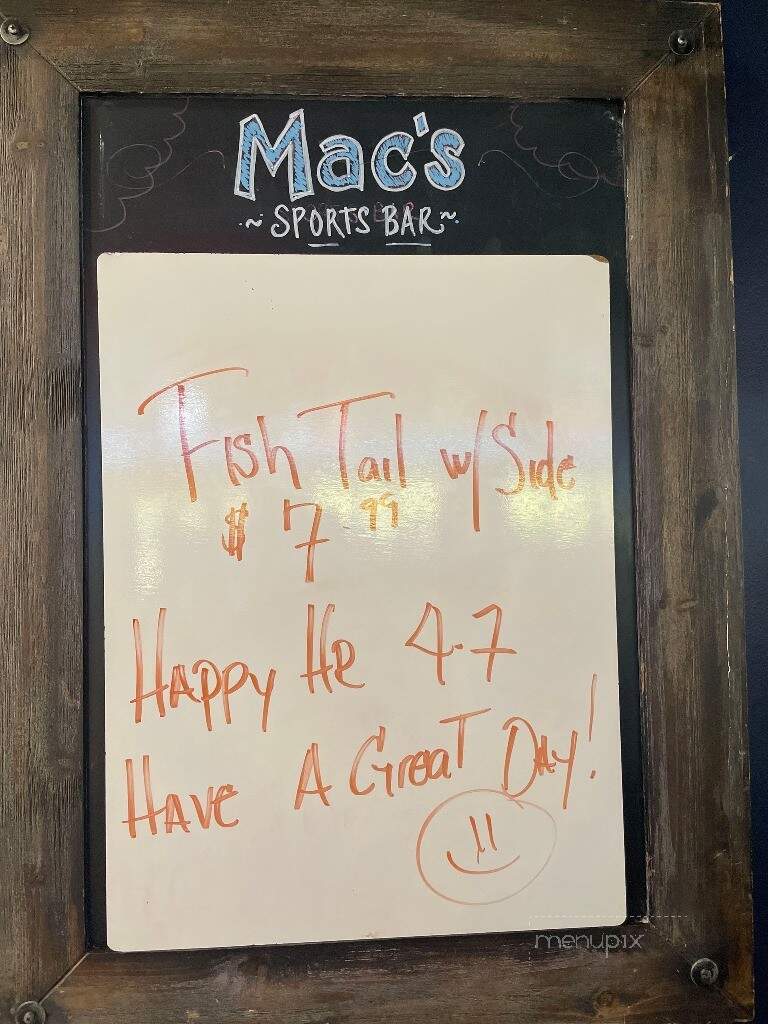 Mac's
~ SPORTS BAR ~
Fish Tail w/ Side
$ 7 99
HAPPY HR 4-7
HAVE A GreaT DAY!
menupix